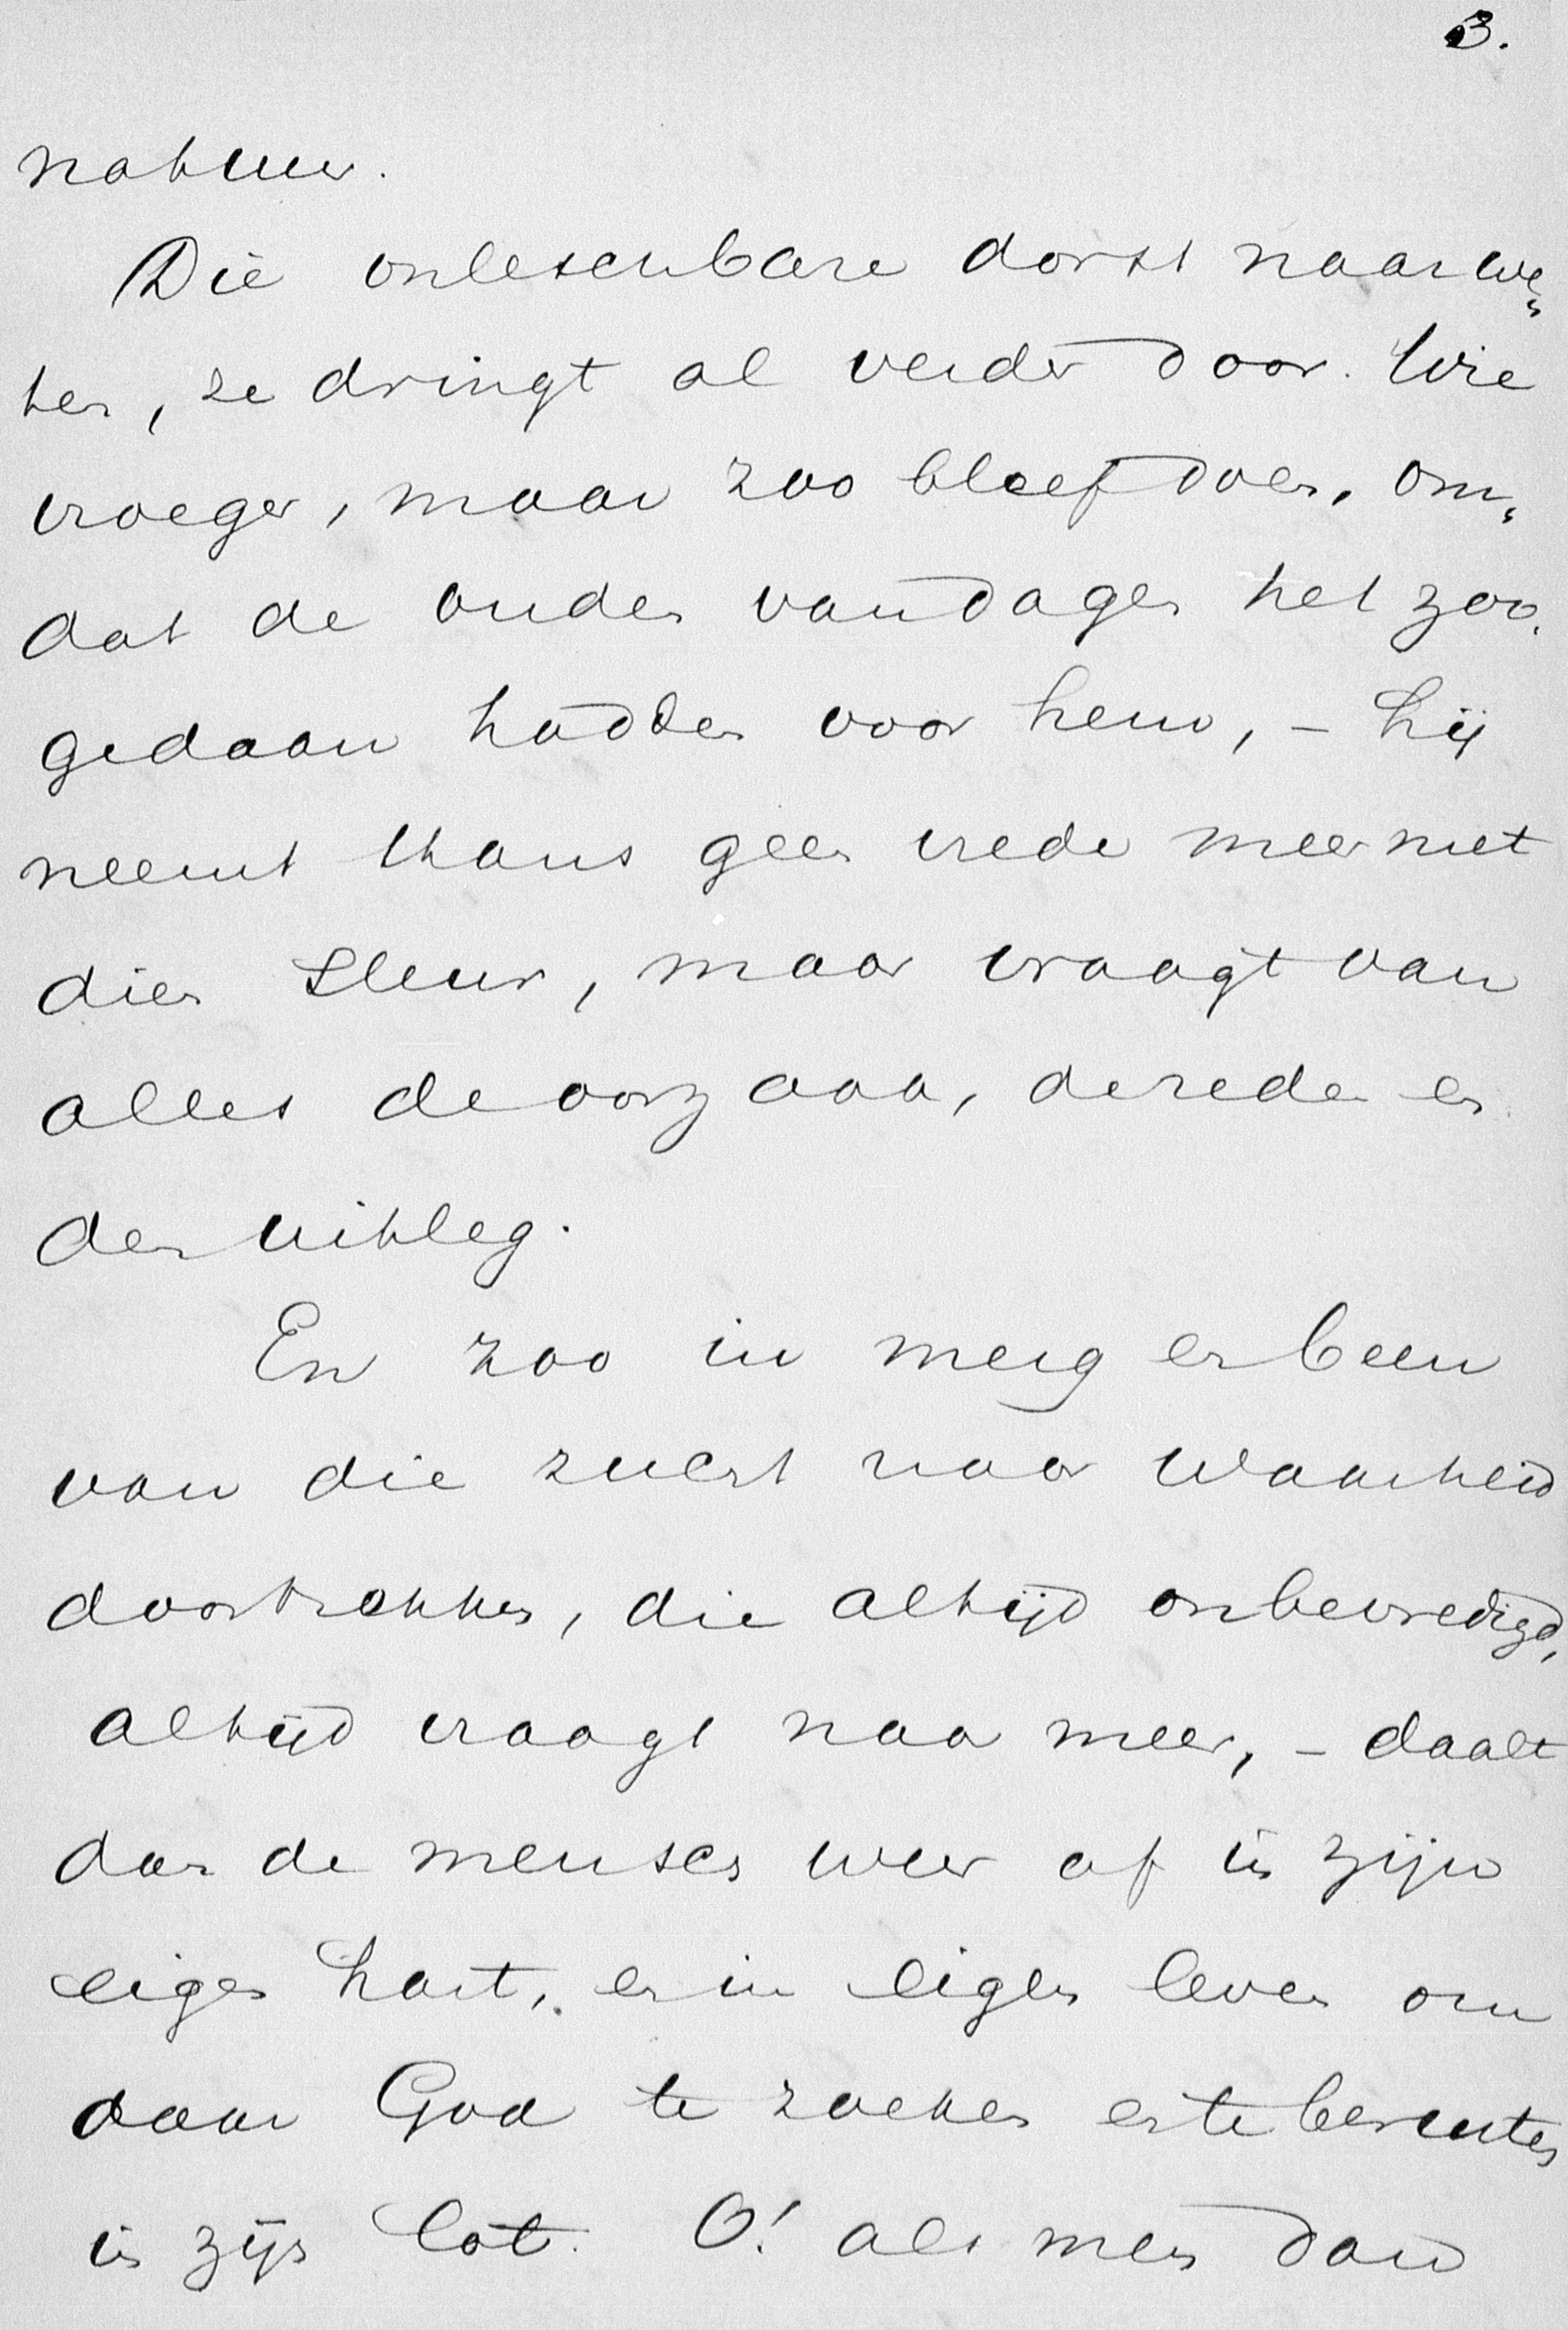 3.
natuur.
Die onleschbare dorst naar we„
ten, ze dringt al verder door. Wie
vroeger, maar zoo bleef doen, om„
dat de ouden van dagen het zoo
gedaan hadden voor hem, – hij
neemt thans geen vrede meer met
dien sleur, maar vraagt van
alles de oorzaak, de reden en
den uitleg.
En zoo in merg en been
van die zucht naar waarheid
doortrokken, die altijd onbevredigd,
altijd vraagt naar meer, – daalt
dan de mensch weer af in zijn
eigen hart, en in eigen leven om
daar God te zoeken en te berusten
in zijn lot. O! als men dan